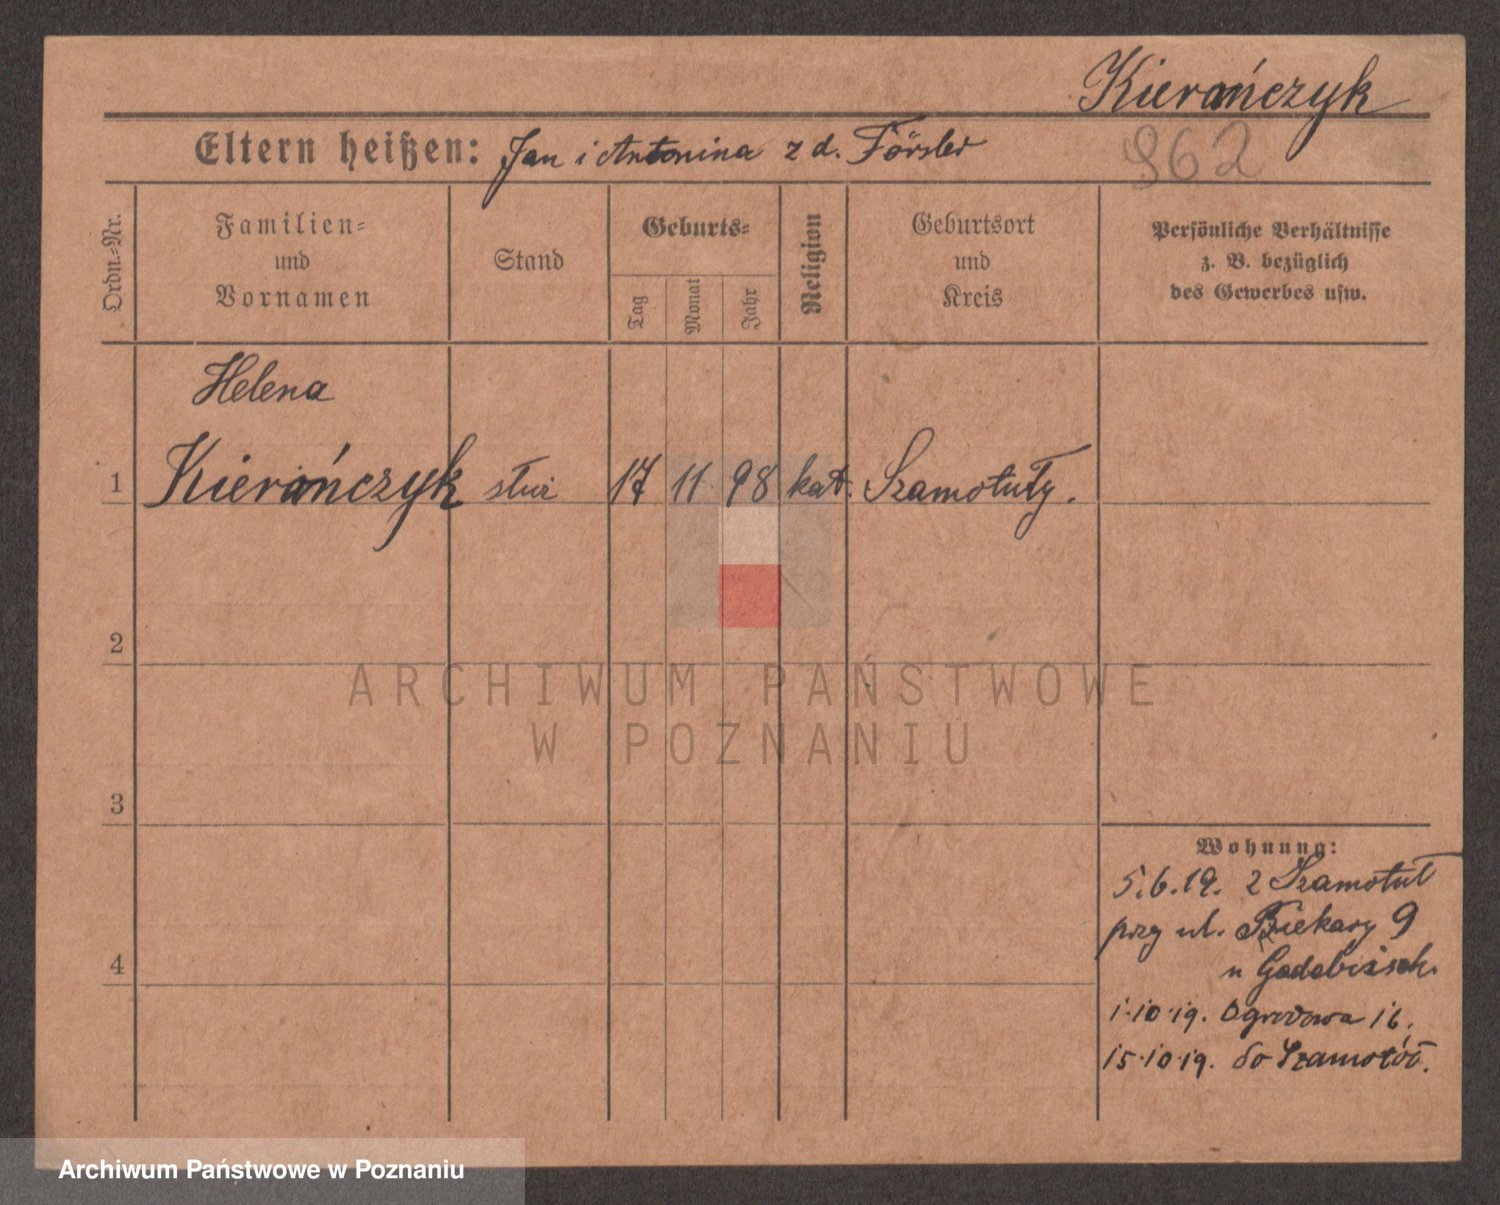 Kierańczyk
Eltern heißen: Jan i Antonina z d. Försler
962
Ordn.=Nr.
Familien=
und
Vornamen
Stand
Geburts=
Tag
Monat
Jahr
Religion
Geburtsort
und
Kreis
Persönliche Verhältnisse
z. B. bezüglich
des Gewerbes usw.
Helena
1 Kierańczyk służ 17 11 98 kat. Szamotuły.
2
3
4
Wohnung:
5.6.19. z Szamotuł
przy ul. Piekary 9
u
1.10.19. Ogrodowa 16.
15.10.19. do Szamotuł.
ARCHIWUM PAŃSTWOWE
W POZNANIU
Archiwum Państwowe w Poznaniu